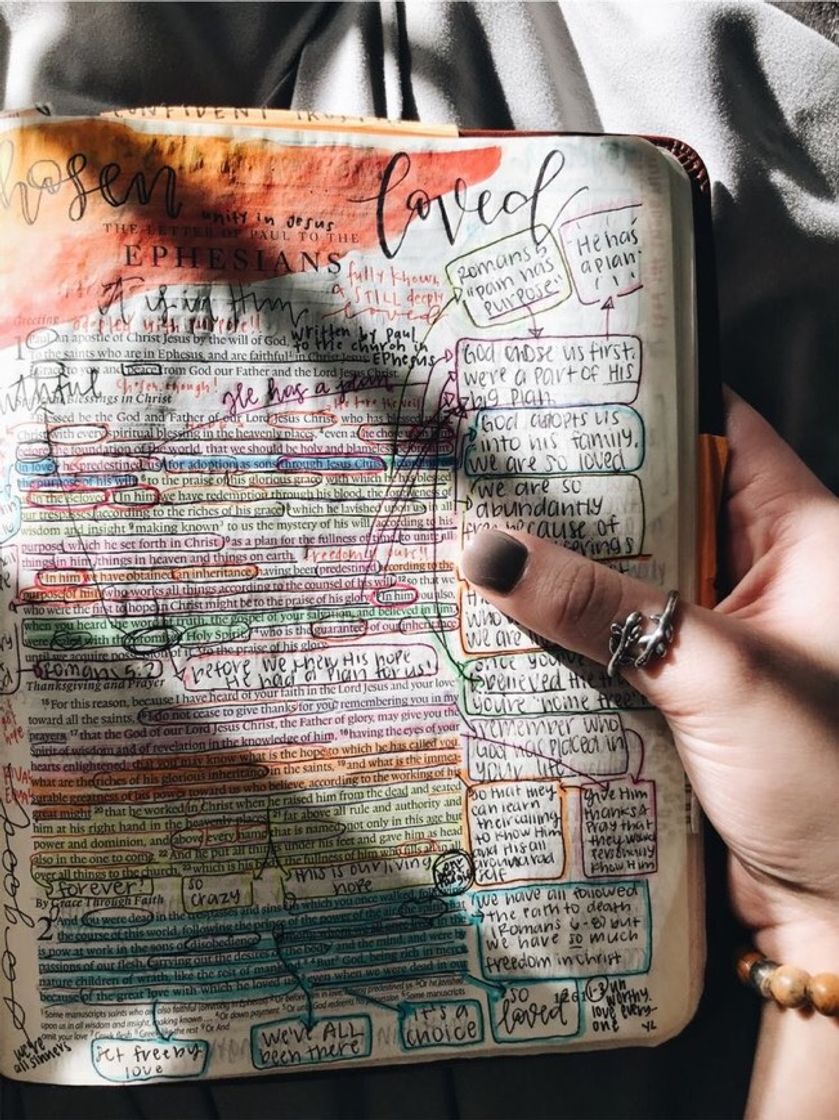 CONFIDENT TRUST
hosen
loved
unity in Jesus
THE LETTER OF PAUL TO THE
EPHESIANS
fully known
& STILL deeply
loved
Romans 5
"pain has
purpose"
He has
a plan
!!!
Him
with purpose!!
written by Paul
to the church in
EPHESUS
Greeting
Paul, an apostle of Christ Jesus by the will of God,
To the saints who are in Ephesus, and are faithful in Christ Jesus:
Grace to you and peace from God our Father and the Lord Jesus Christ.
Chosen, though!
He has a plan
Blessings in Christ
Blessed be the God and Father of our Lord Jesus Christ, who has blessed us
Christ with every spiritual blessing in the heavenly places, 4 even as he chose
before the foundation of the world, that we should be holy and blameless
in love he predestined us for adoption as sons through Jesus Christ
the purpose of his will, to the praise of his glorious grace, with which he has blessed
in the Beloved. In him we have redemption through his blood, the forgiveness of
our trespasses, according to the riches of his grace, which he lavished upon us in all
wisdom and insight 9 making known to us the mystery of his will, according to his
purpose, which he set forth in Christ 10 as a plan for the fullness of time, to unite all
things in him, things in heaven and things on earth.
In him we have obtained an inheritance, having been predestined according to the
purpose of him who works all things according to the counsel of his will, 12 so that we
who were the first to hope in Christ might be to the praise of his glory. In him you also,
when you heard the word of truth, the gospel of your salvation, and believed in him,
were sealed with the promised Holy Spirit, 14 who is the guarantee of our inheritance
until we acquire possession of it, to the praise of his glory.
Romans 5:2
before we knew His hope
He had a plan for us!
Thanksgiving and Prayer
15 For this reason, because I have heard of your faith in the Lord Jesus and your love
toward all the saints, 16 I do not cease to give thanks for you, remembering you in my
prayers, 17 that the God of our Lord Jesus Christ, the Father of glory, may give you the
Spirit of wisdom and of revelation in the knowledge of him, 18 having the eyes of your
hearts enlightened, that you may know what is the hope to which he has called you,
what are the riches of his glorious inheritance in the saints, 19 and what is the immea-
surable greatness of his power toward us who believe, according to the working of his
great might 20 that he worked in Christ when he raised him from the dead and seated
him at his right hand in the heavenly places, 21 far above all rule and authority and
power and dominion, and above every name that is named, not only in this age but
also in the one to come. 22 And he put all things under his feet and gave him as head
over all things to the church, 23 which is his body, the fullness of him who fills all in all.
forever!
so
crazy
this is our living
hope
By Grace Through Faith
2 And you were dead in the trespasses and sins 2 in which you once walked, following
the course of this world, following the prince of the power of the air, the spirit that
is now at work in the sons of disobedience
passions of our flesh, carrying out the desires of the body and the mind, and were by
nature children of wrath, like the rest of mankind. 4 But God, being rich in mercy,
because of the great love with which he loved us, 5 even when we were dead in our
God chose us first.
we're a part of HIS
big plan
God adopts us
into his family.
we are so loved
we are so
abundantly
free because of
we are
once you've
believed the
you're "home free"
remember who
God has placed in
your life
so that they
can learn
their calling
to know Him
and His all
give Him
thanks &
pray that
they would
personally
know Him
we have all followed
the path to death
(Romans 6-8) but
we have so much
freedom in Christ
so
loved
1261
un
worthy.
love every-
one
it's a
choice
we've ALL
been there
set free by
love
we're
all sinners